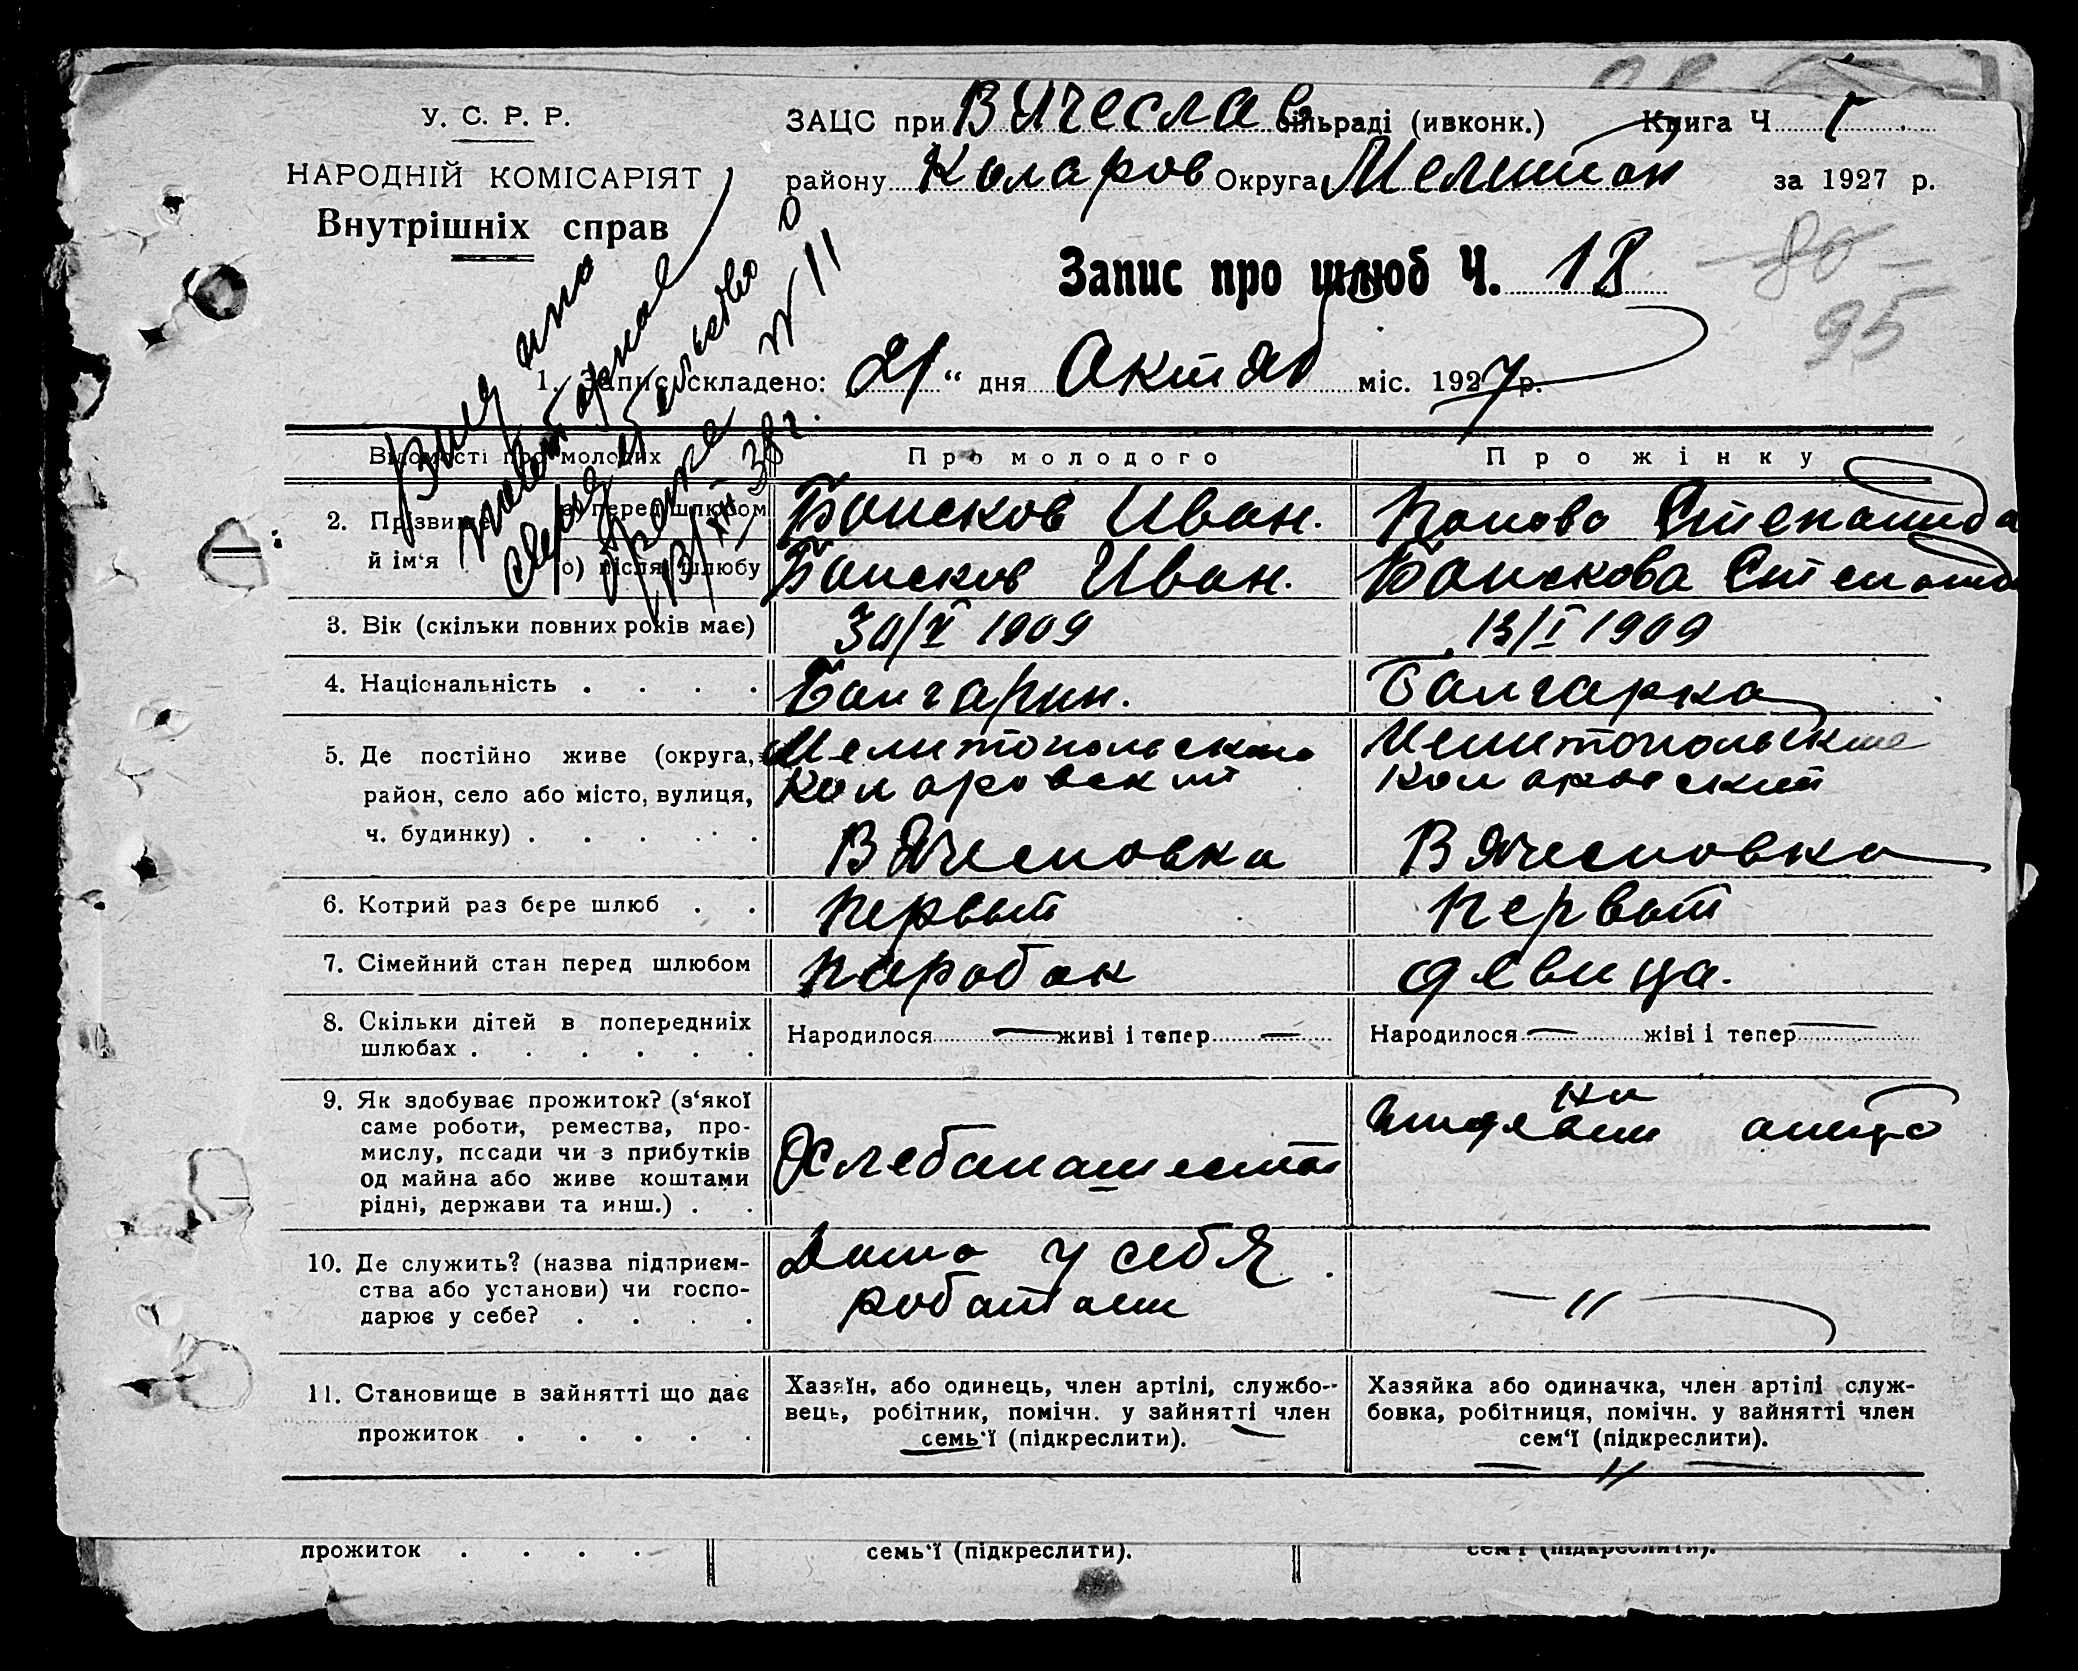 У. С. Р. Р.
НАРОДНІЙ КОМІСАРІЯТ
Внутрішніх справ
ЗАЦС при Вячеслав сільраді (ивконк.) Книга Ч
району Коларов Округа Мелитоп за 1927 р.
Запис про шлюб Ч. 18
80
95
1. Запис складено: 21 “ дня Октяб міс. 1927 р.
Видано
повторное
свидетельство
о браке № 11
38 г.
Відомості про молодих Про молодого Про жінку
2. Прізвище й ім‘я
а) перед шлюбом Баисков Иван. Попова Степанида
о) після шлюбу Баисков Иван. Баискова Степанида
3. Вік (скільки повних років має) 30/V 1909 13/I 1909
4. Національність . . . . Балгарин. Балгарка
5. Де постійно живе (округа, Мелитопольская Мелитопольская
район, село або місто, вулиця, Коларовский Коларовский
ч. будинку) . . . . . Вячесловка Вячесловка
6. Котрий раз бере шлюб . . первый первый
7. Сімейний стан перед шлюбом паробак девица.
8. Скільки дітей в попередниіх
шлюбах . . . . . .
Народилося — живі і тепер —
Народилося — жіві і тепер —
9. Як здобуває прожиток? (з‘якої
саме роботи, ремества, про-
мислу, псади чи з прибутків
од майна або живе коштами
рідні, держави та инш.) . .
Хлебапашество
10. Де служить? (назва підприєм-
ства або установи) чи госпо-
дарює у себе? . . . .
Дома у себя
работает
— 〃 —
11. Становище в зайнятті що дає
прожиток . . . . .
Хазяїн, або одинець, член артілі, службо-
вець, робітник, помічн. у зайнятті член
семь‘ї (підкреслити).
Хазяйка або одиначка, член артілі служ-
бовка, робітниця, помічн. у зайнятті член
сем‘ї (підкреслити).
— 〃 —
прожиток . . . . семь‘ї (підкреслити). сем‘ї (підкреслити).